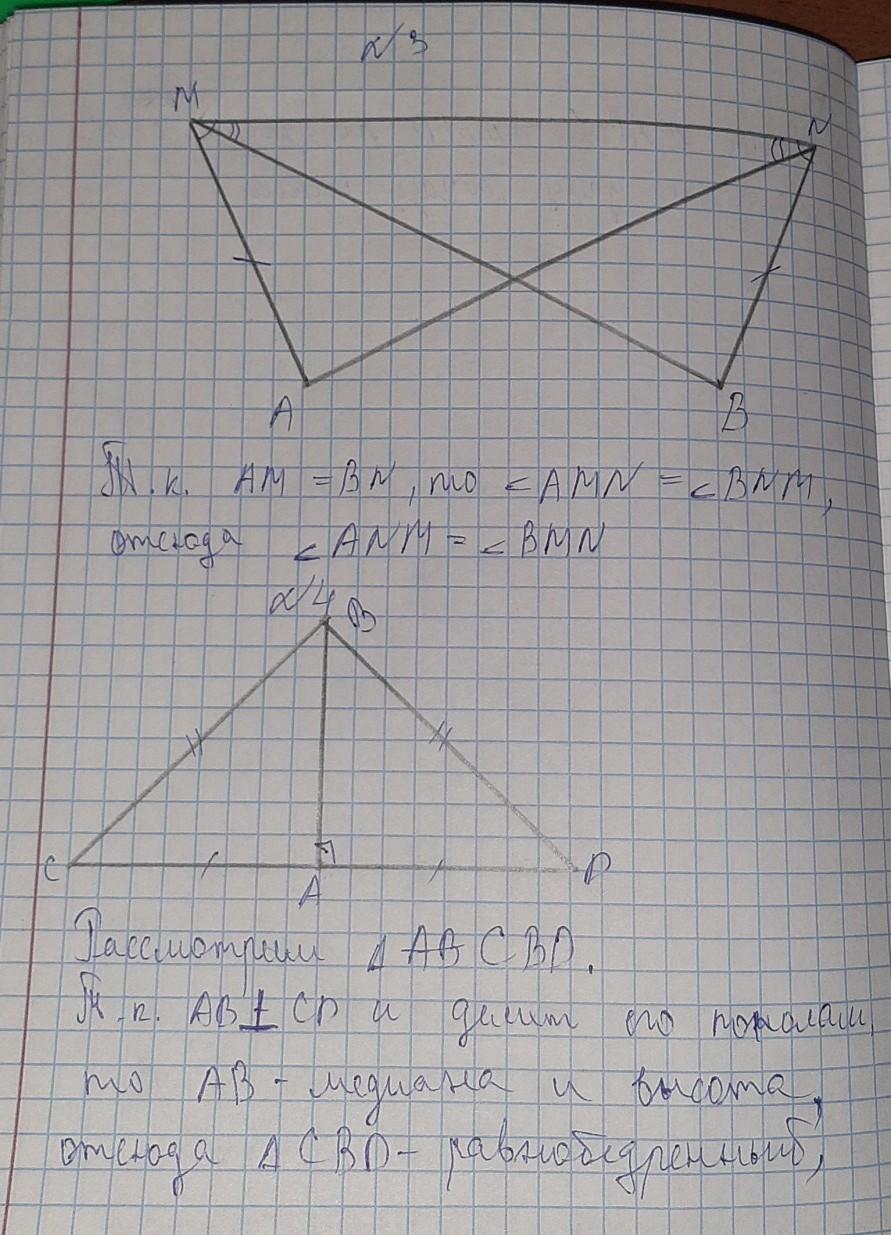 №3
M
N
A
B
Т.к. AM = BN, то ∠AMN = ∠BNM,
отсюда ∠ANM = ∠BMN
№4
B
C
A
D
Рассмотрим Δ CBD.
Т.к. AB ⊥ CD и делит по пополам,
то AB - медиана и высота,
отсюда Δ CBD - равнобедренный,